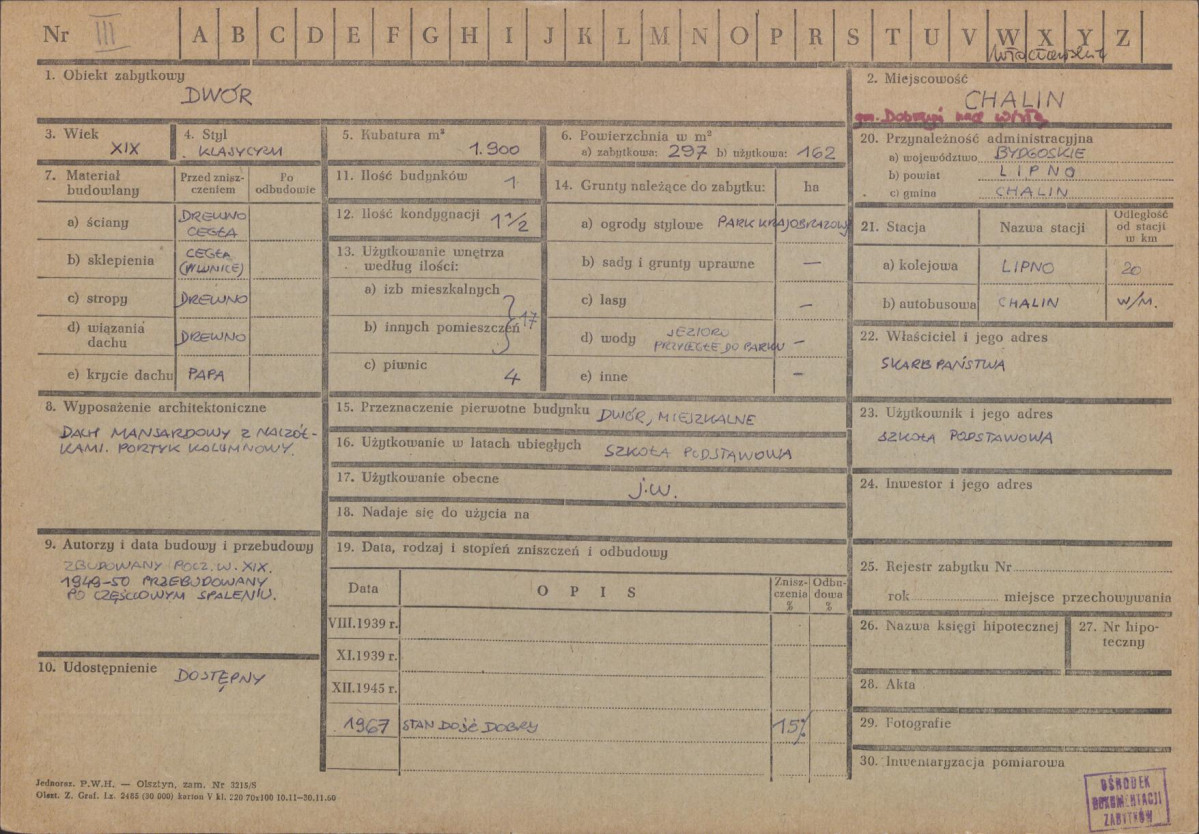 Nr III A B C D E F G H I J K L M N O P R S T U V W X Y Z
Włocławskie
1. Obiekt zabytkowy
DWÓR
2. Miejscowość
CHALIN
gm. Dobrzyń nad Wisłą
3. Wiek
XIX
4. Styl
KLASYCYZM
5. Kubatura m³
1.900
6. Powierzchnia w m²
a) zabytkowa: 297 b) użytkowa: 162
7. Materiał budowlany
Przed znisz-
czeniem
Po
odbudowie
a) ściany DREWNO
CEGŁA
b) sklepienia CEGŁA
(PIWNICE)
c) stropy DREWNO
d) wiązania
dachu DREWNO
e) krycie dachu PAPA
8. Wyposażenie architektoniczne
DACH MANSARDOWY Z NACZÓŁ-
KAMI. PORTYK KOLUMNOWY.
9. Autorzy i data budowy i przebudowy
ZBUDOWANY POCZ. W. XIX.
1949-50 PRZEBUDOWANY
PO CZĘŚCIOWYM SPALENIU.
10. Udostępnienie DOSTĘPNY
11. Ilość budynków 1
12. Ilość kondygnacji 1 1/2
13. Użytkowanie wnętrza
według ilości:
a) izb mieszkalnych
b) innych pomieszczeń } 17
c) piwnic 4
14. Grunty należące do zabytku: ha
a) ogrody stylowe PARK KRAJOBRAZOWY
b) sady i grunty uprawne —
c) lasy —
d) wody JEZIORO
PRZYLEGŁE DO PARKU —
e) inne —
15. Przeznaczenie pierwotne budynku DWÓR, MIESZKALNE
16. Użytkowanie w latach ubiegłych SZKOŁA PODSTAWOWA
17. Użytkowanie obecne j.w.
18. Nadaje się do użycia na
19. Data, rodzaj i stopień zniszczeń i odbudowy
Data OPIS Znisz-
czenia
% Odbu-
dowa
%
VIII.1939 r.
XI.1939 r.
XII.1945 r.
1967 STAN DOŚĆ DOBRY 15%
20. Przynależność administracyjna
a) województwo BYDGOSKIE
b) powiat LIPNO
c) gmina CHALIN
21. Stacja Nazwa stacji Odległość
od stacji
w km
a) kolejowa LIPNO 20
b) autobusowa CHALIN W/M.
22. Właściciel i jego adres
SKARB PAŃSTWA
23. Użytkownik i jego adres
SZKOŁA PODSTAWOWA
24. Inwestor i jego adres
25. Rejestr zabytku Nr
rok miejsce przechowywania
26. Nazwa księgi hipotecznej
27. Nr hipo-
teczny
28. Akta
29. Fotografie
30. Inwentaryzacja pomiarowa
Jednoraz. P.W.H. — Olsztyn, zam. Nr 3215/S
Olszt. Z. Graf. Lz. 2485 (30 000) karton V kl. 220 70x100 10.11—30.11.60
OŚRODEK
DOKUMENTACJI
ZABYTKÓW